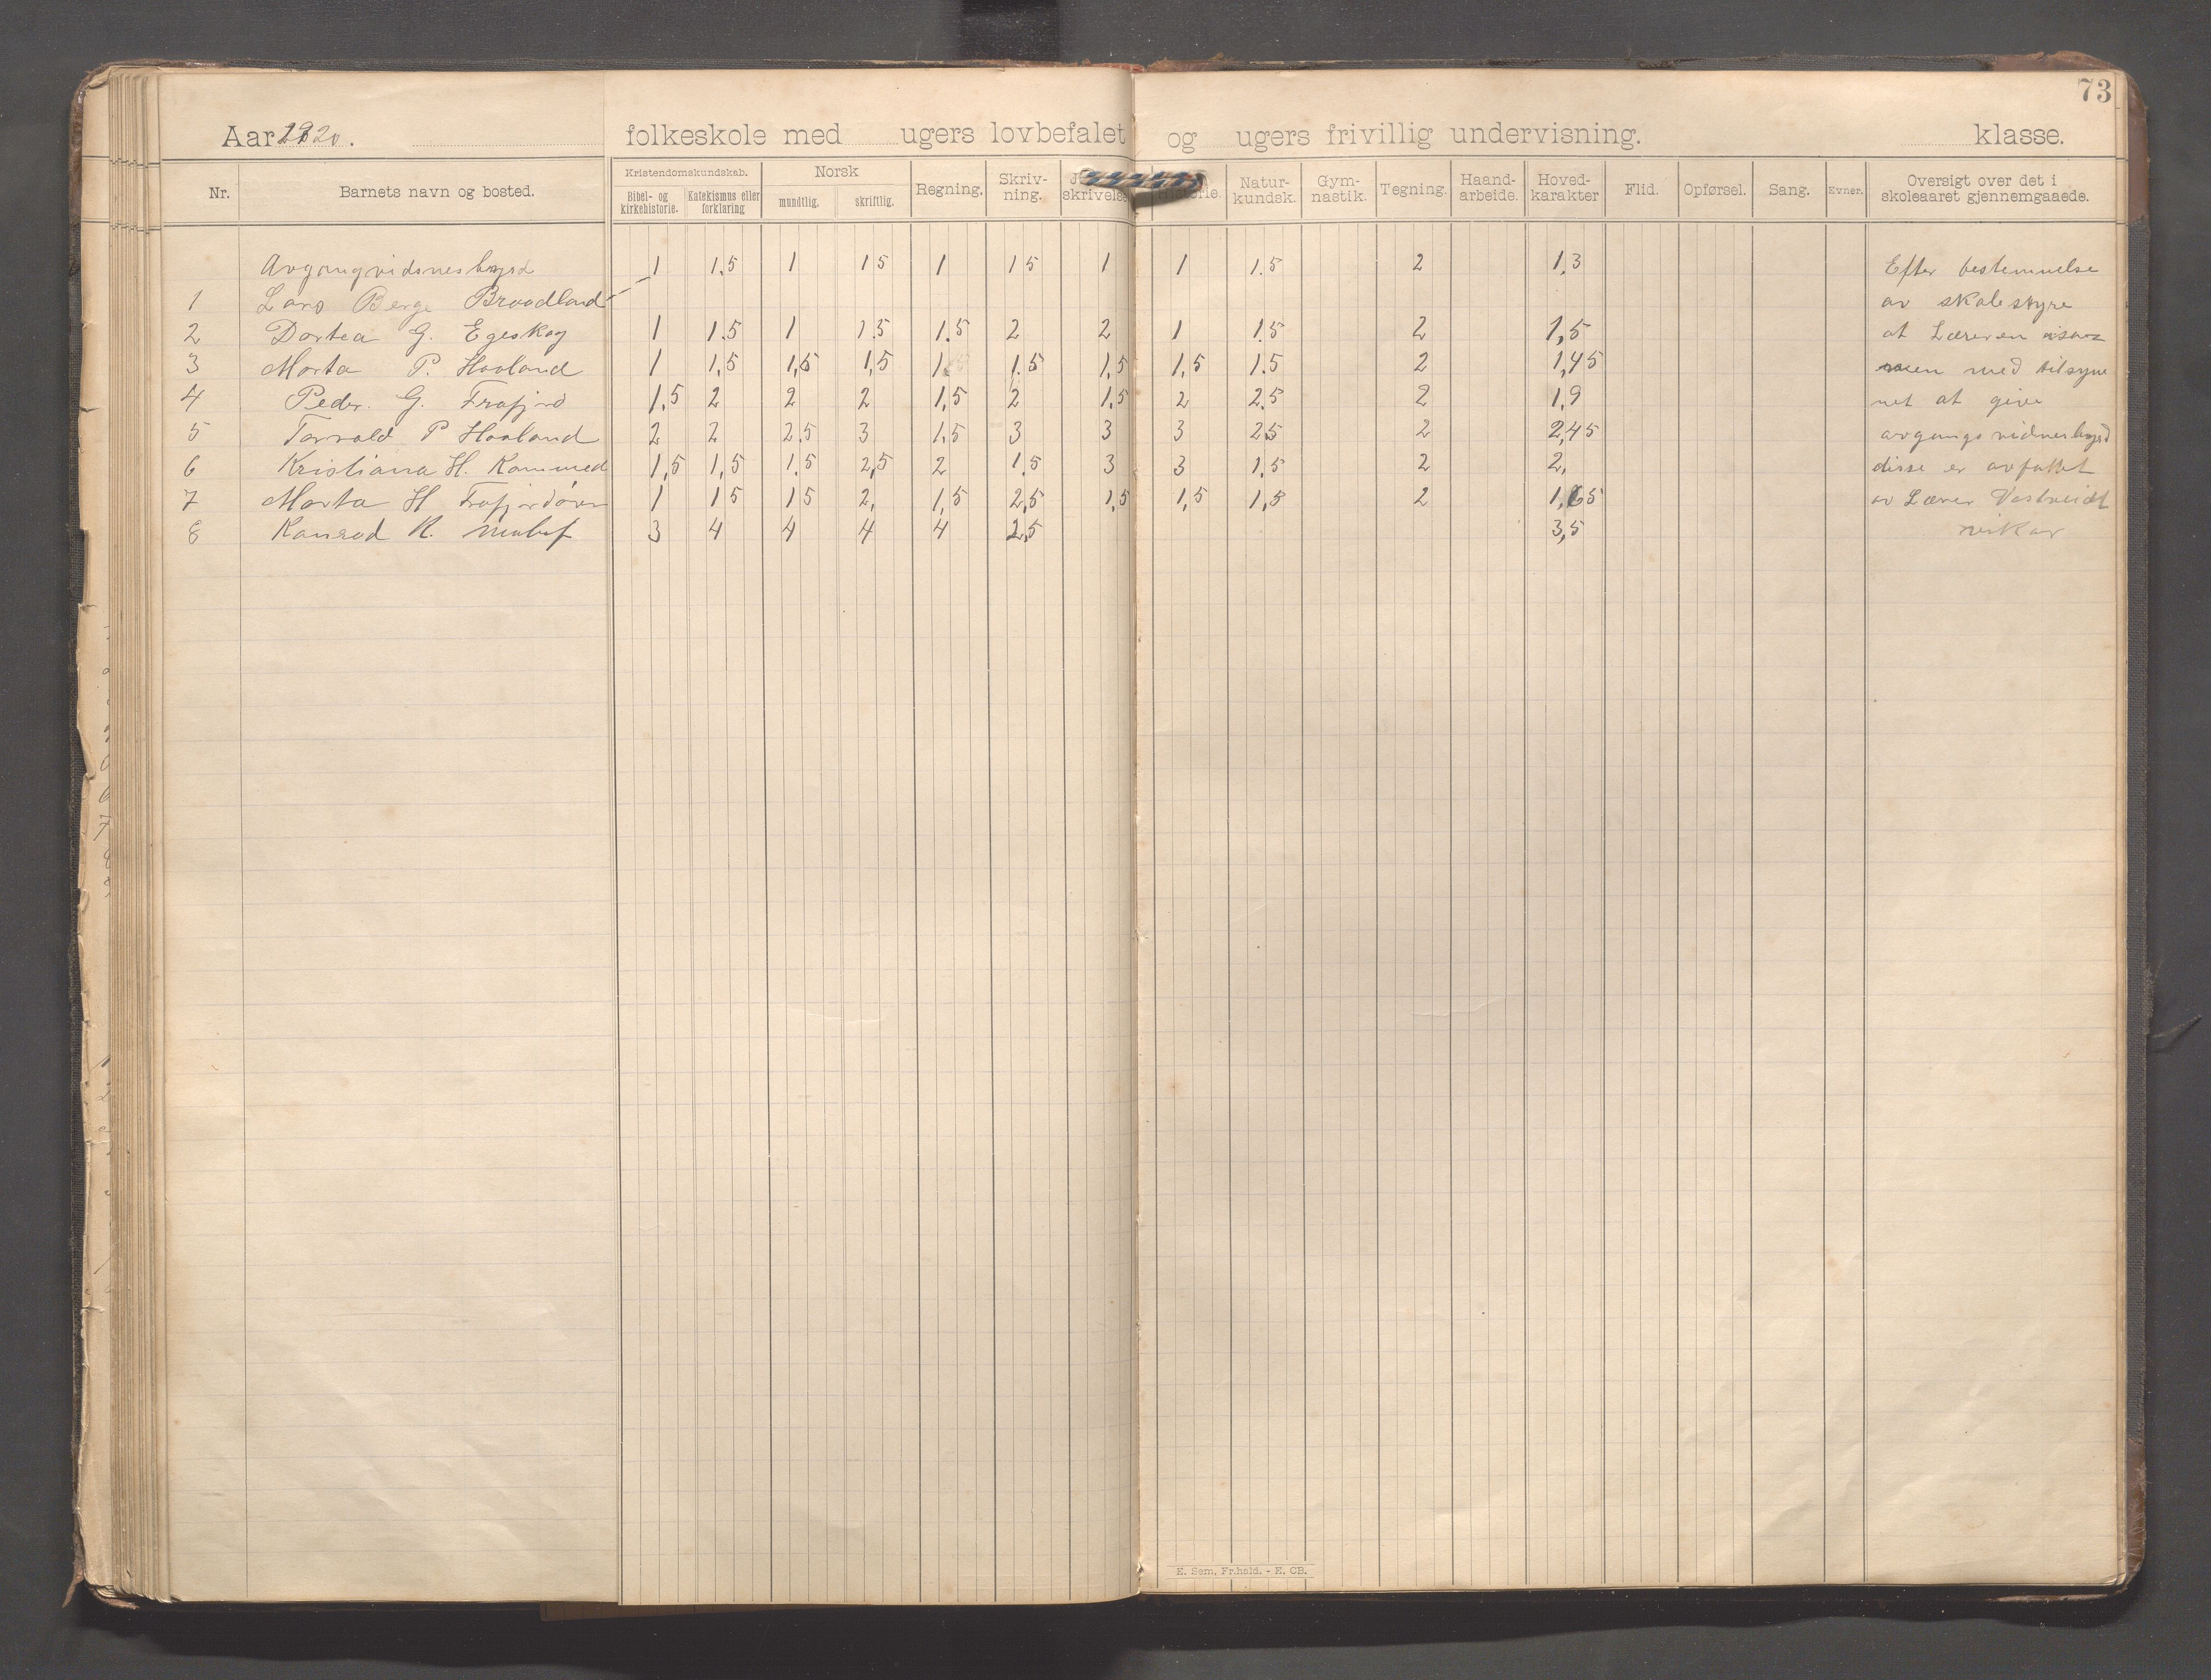 73
Aar 1920. folkeskole med ugers lovbefalet og ugers frivillig undervisning. klasse.
Nr. Barnets navn og bosted. Kristendomskundskab. Bibel- og kirkehistorie. Katekismus eller forklaring Norsk mundtlig. skriftlig. Regning. Skriv-ning. skrivelse historie. Natur-kundsk. Gym-nastik. Tegning. Haand-arbeide. Hoved-karakter Flid. Opførsel. Sang. Evner. Oversigt over det i skoleaaret gjennemgaaede.
Avgangvidnesbyrd 1 1,5 1 15 1 15 1 1 1.5 2 1,3 Efter bestemmelse
1 Lars Berge Braadland av skolestyre
2 Dortea G. Egeskog 1 1.5 1 1.5 1.5 2 2 1 1.5 2 1,5 at Læreren isam
3 Marta P. Haaland 1 1,5 1,5 1,5 1 1.5 1,5 1,5 1.5 2 1,45 men med tilsyne
4 Peder. G. Frafjord 1,5 2 2 2 1,5 2 1,5 2 2.5 2 1,9 net at give
5 Torvald P Haaland 2 2 2.5 3 1.5 3 3 3 2.5 2 2,45 avgangsvidnesbyrd
6 Kristiana H. Kommed 1,5 1,5 1,5 2,5 2 1.5 3 3 1.5 2 2, disse er avfattet
7 Marta H Frafjordøren 1 15 15 2, 1,5 2,5 1,5 1,5 1,5 2 1,65 av Lærer Vastveidt
8 Konrad R. Molaug 3 4 4 4 4 2,5 3,5 vikar
E. Sem, Fr.hald. - E. CB.